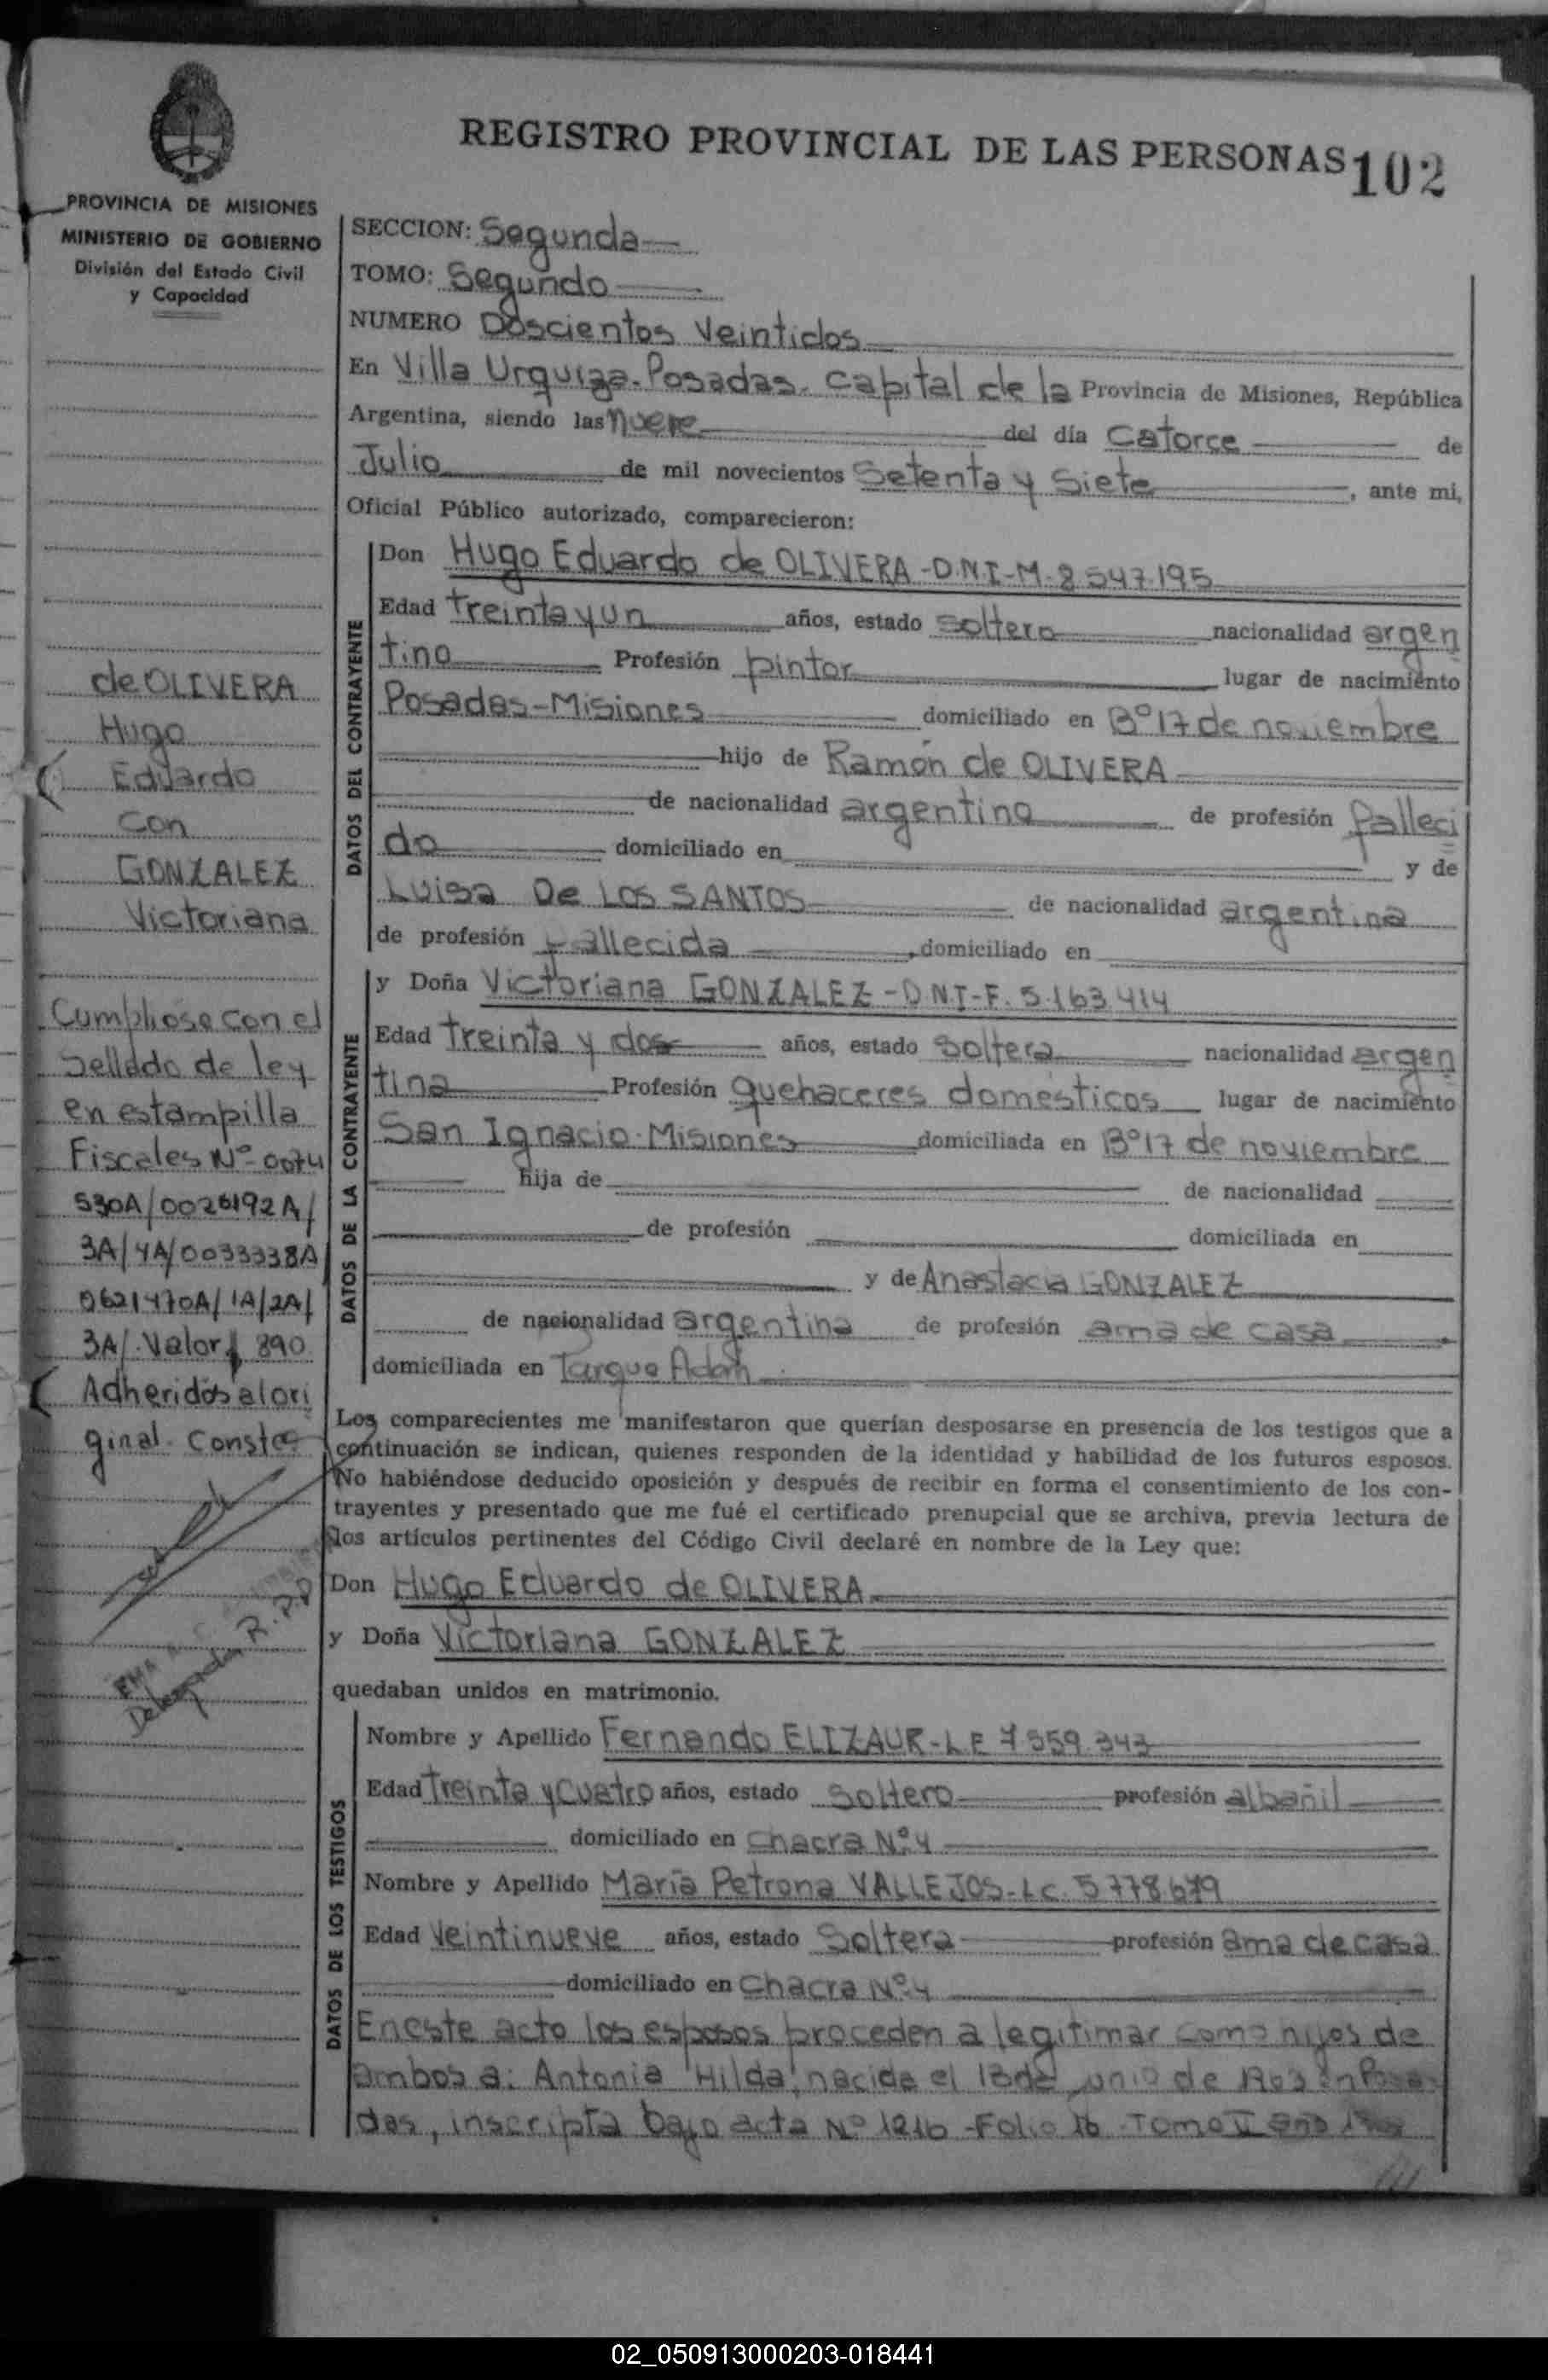 REGISTRO PROVINCIAL DE LAS PERSONAS 102
PROVINCIA DE MISIONES
MINISTERIO DE GOBIERNO
División del Estado Civil
y Capacidad
de OLIVERA
Hugo
Eduardo
con
GONZALEZ
Victoriana
Cumpliose con el
Sellado de ley
en estampilla
Fiscales Nº 0074
530A/0026192A/
3A/4A/0033338A
0621470A/1A/2A/
3A/. Valor $ 890
Adheridos al ori
ginal. Conste
Delegada R.P.P
SECCION: Segunda
TOMO: Segundo
NUMERO Doscientos Veintidos
En Villa Urquiza. Posadas. Capital de la Provincia de Misiones, República
Argentina, siendo las nueve del día Catorce de
Julio de mil novecientos Setenta y Siete, ante mi,
Oficial Público autorizado, comparecieron:
DATOS DEL CONTRAYENTE
Don Hugo Eduardo de OLIVERA - D.N.I-M-8.547.195
Edad treinta y un años, estado soltero nacionalidad argen
tino Profesión pintor lugar de nacimiento
Posadas-Misiones domiciliado en Bº17 de noviembre
hijo de Ramón de OLIVERA
de nacionalidad argentino de profesión falleci
do domiciliado en y de
Luisa De LOS SANTOS de nacionalidad argentina
de profesión fallecida, domiciliado en
DATOS DE LA CONTRAYENTE
y Doña Victoriana GONZALEZ - D.N.I-F. 5.163.414
Edad Treinta y dos años, estado Soltera nacionalidad argen
tina Profesión quehaceres domésticos lugar de nacimiento
San Ignacio-Misiones domiciliada en Bº17 de noviembre
hija de de nacionalidad
de profesión domiciliada en
y de Anastacia GONZALEZ
de nacionalidad argentina de profesión ama de casa
domiciliada en Parque Adam
Los comparecientes me manifestaron que querían desposarse en presencia de los testigos que a
continuación se indican, quienes responden de la identidad y habilidad de los futuros esposos.
No habiéndose deducido oposición y después de recibir en forma el consentimiento de los con-
trayentes y presentado que me fué el certificado prenupcial que se archiva, previa lectura de
los artículos pertinentes del Código Civil declaré en nombre de la Ley que:
Don Hugo Eduardo de OLIVERA
y Doña Victoriana GONZALEZ
quedaban unidos en matrimonio.
DATOS DE LOS TESTIGOS
Nombre y Apellido Fernando ELIZAUR-L.E 7.559.343
Edad Treinta y Cuatro años, estado Soltero profesión albañil
domiciliado en Chacra Nº4
Nombre y Apellido María Petrona VALLEJOS-L.C. 5.778.679
Edad Veintinueve años, estado Soltera profesión ama de casa
domiciliado en Chacra Nº4
En este acto los esposos proceden a legitimar como hijos de
ambos a: Antonia Hilda, nacida el 13 de junio de 1963 en Posa
das, inscripta bajo acta Nº 1216 -Folio 16 Tomo II año
02_050913000203-018441